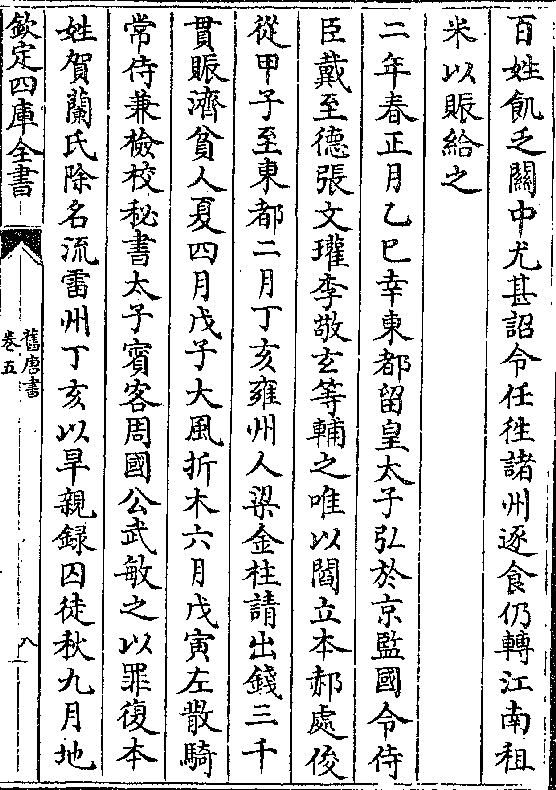 百姓飢乏關中尤甚詔令任徃諸州逐食仍轉江南租
米以賑給之
二年春正月乙巳幸東都留皇太子弘於京監國令侍
臣戴至德張文瓘李敬玄等輔之唯以閻立本郝處俊
從甲子至東都二月丁亥雍州人梁金柱請出錢三千
貫賑濟貧人夏四月戊子大風折木六月戊寅左散騎
常侍兼檢校秘書太子賓客周國公武敏之以罪復本
姓賀蘭氏除名流雷州丁亥以旱親録囚徒秋九月地
欽定四庫全書
舊唐書
卷五
八